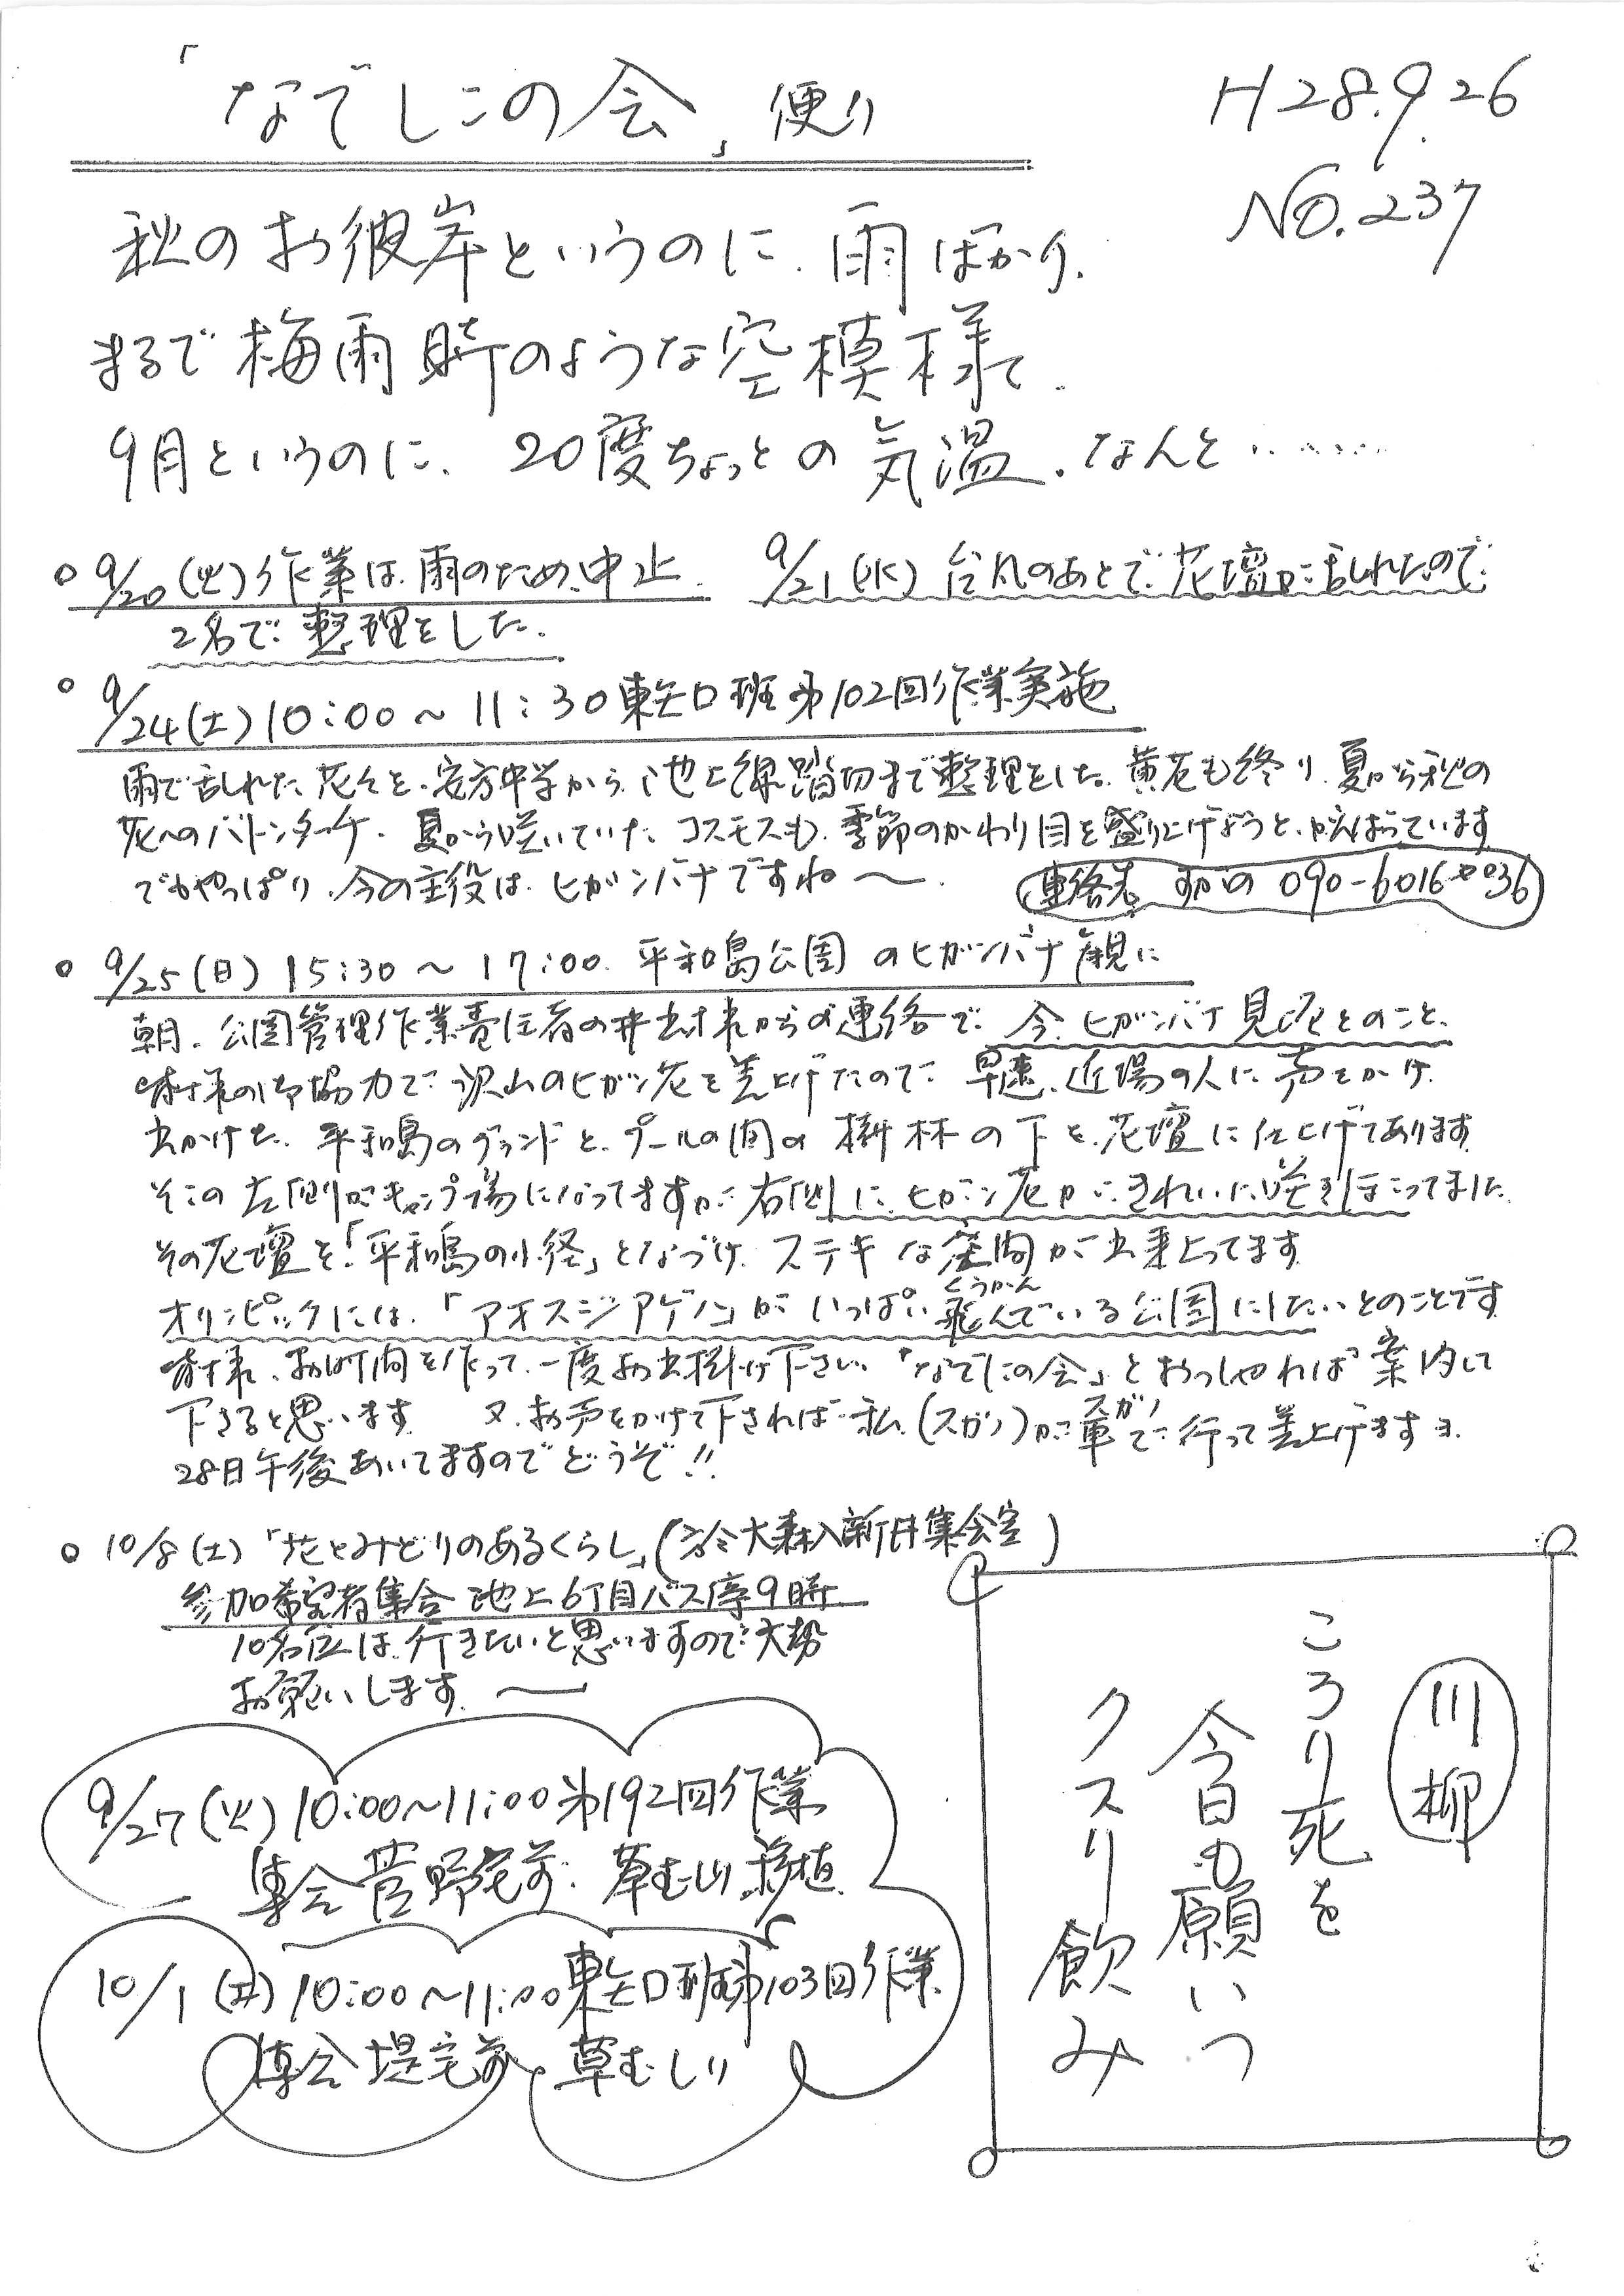 「なでしこの会」便り
H28.9.26
NO.237
秋のお彼岸というのに、雨ばかり、
まるで梅雨時のような空模様で、
9月というのに、20度ちょっとの気温、なんと‥‥‥
○ 9/20(火)作業は雨のため、中止、 9/21(水)台風のあとで花壇が乱れたので
2名で整理をした。
○ 9/24(土)10:00～11:30東矢口班第102回作業実施
雨で乱れた花々を、安方中学から池上線踏切まで整理をした。黄花も終り、夏から秋の
花へのバトンタッチ、夏から咲いていたコスモスも、季節のかわり目を盛り上げようと、がんばっています
でもやっぱり、今の主役は、ヒガンバナですね～。
連絡先 090-6016-0036
○ 9/25(日)15:30～17:00 平和島公園のヒガンバナ観に
朝、公園管理作業責任者の井出様からの連絡で、今、ヒガンバナ見頃とのこと、
皆様の御協力で沢山のヒガン花を差上げたので、早速、近場の人に声をかけ
出かけた。平和島のグランドと、プールの間の樹林の下を、花壇に仕上げてあります
そこの左側がキャンプ場になってますが、右側にヒガン花がきれいに咲きほこってました。
その花壇を「平和島の小径」となづけ、ステキな空間が出来上ってます
くうかん
オリンピックには、「アオスジアゲハ」がいっぱい飛んでいる公園にしたいとのことです
皆様、お時間を作って、一度お出掛け下さい 「なでしこの会」とおっしゃれば案内して
下さると思います 又、お声をかけて下されば、私(スガノ)が車で行って差上げますヨ
スガノ
28日午後あいてますのでどうぞ!!
○ 10/8(土)「花とみどりのあるくらし」(於大森入新井集会室)
参加希望者集合 池上6丁目バス停9時
10名位は、行きたいと思いますので、大勢
お願いします。～
9/27(火)10:00～11:00第192回作業
集合菅野宅前、草むしり、移植
10/1(土)10:00～11:00東矢口班第103回作業
集合堤宅前 草むしり
川柳
ころり死を
今日も願いつ
クスリ飲み